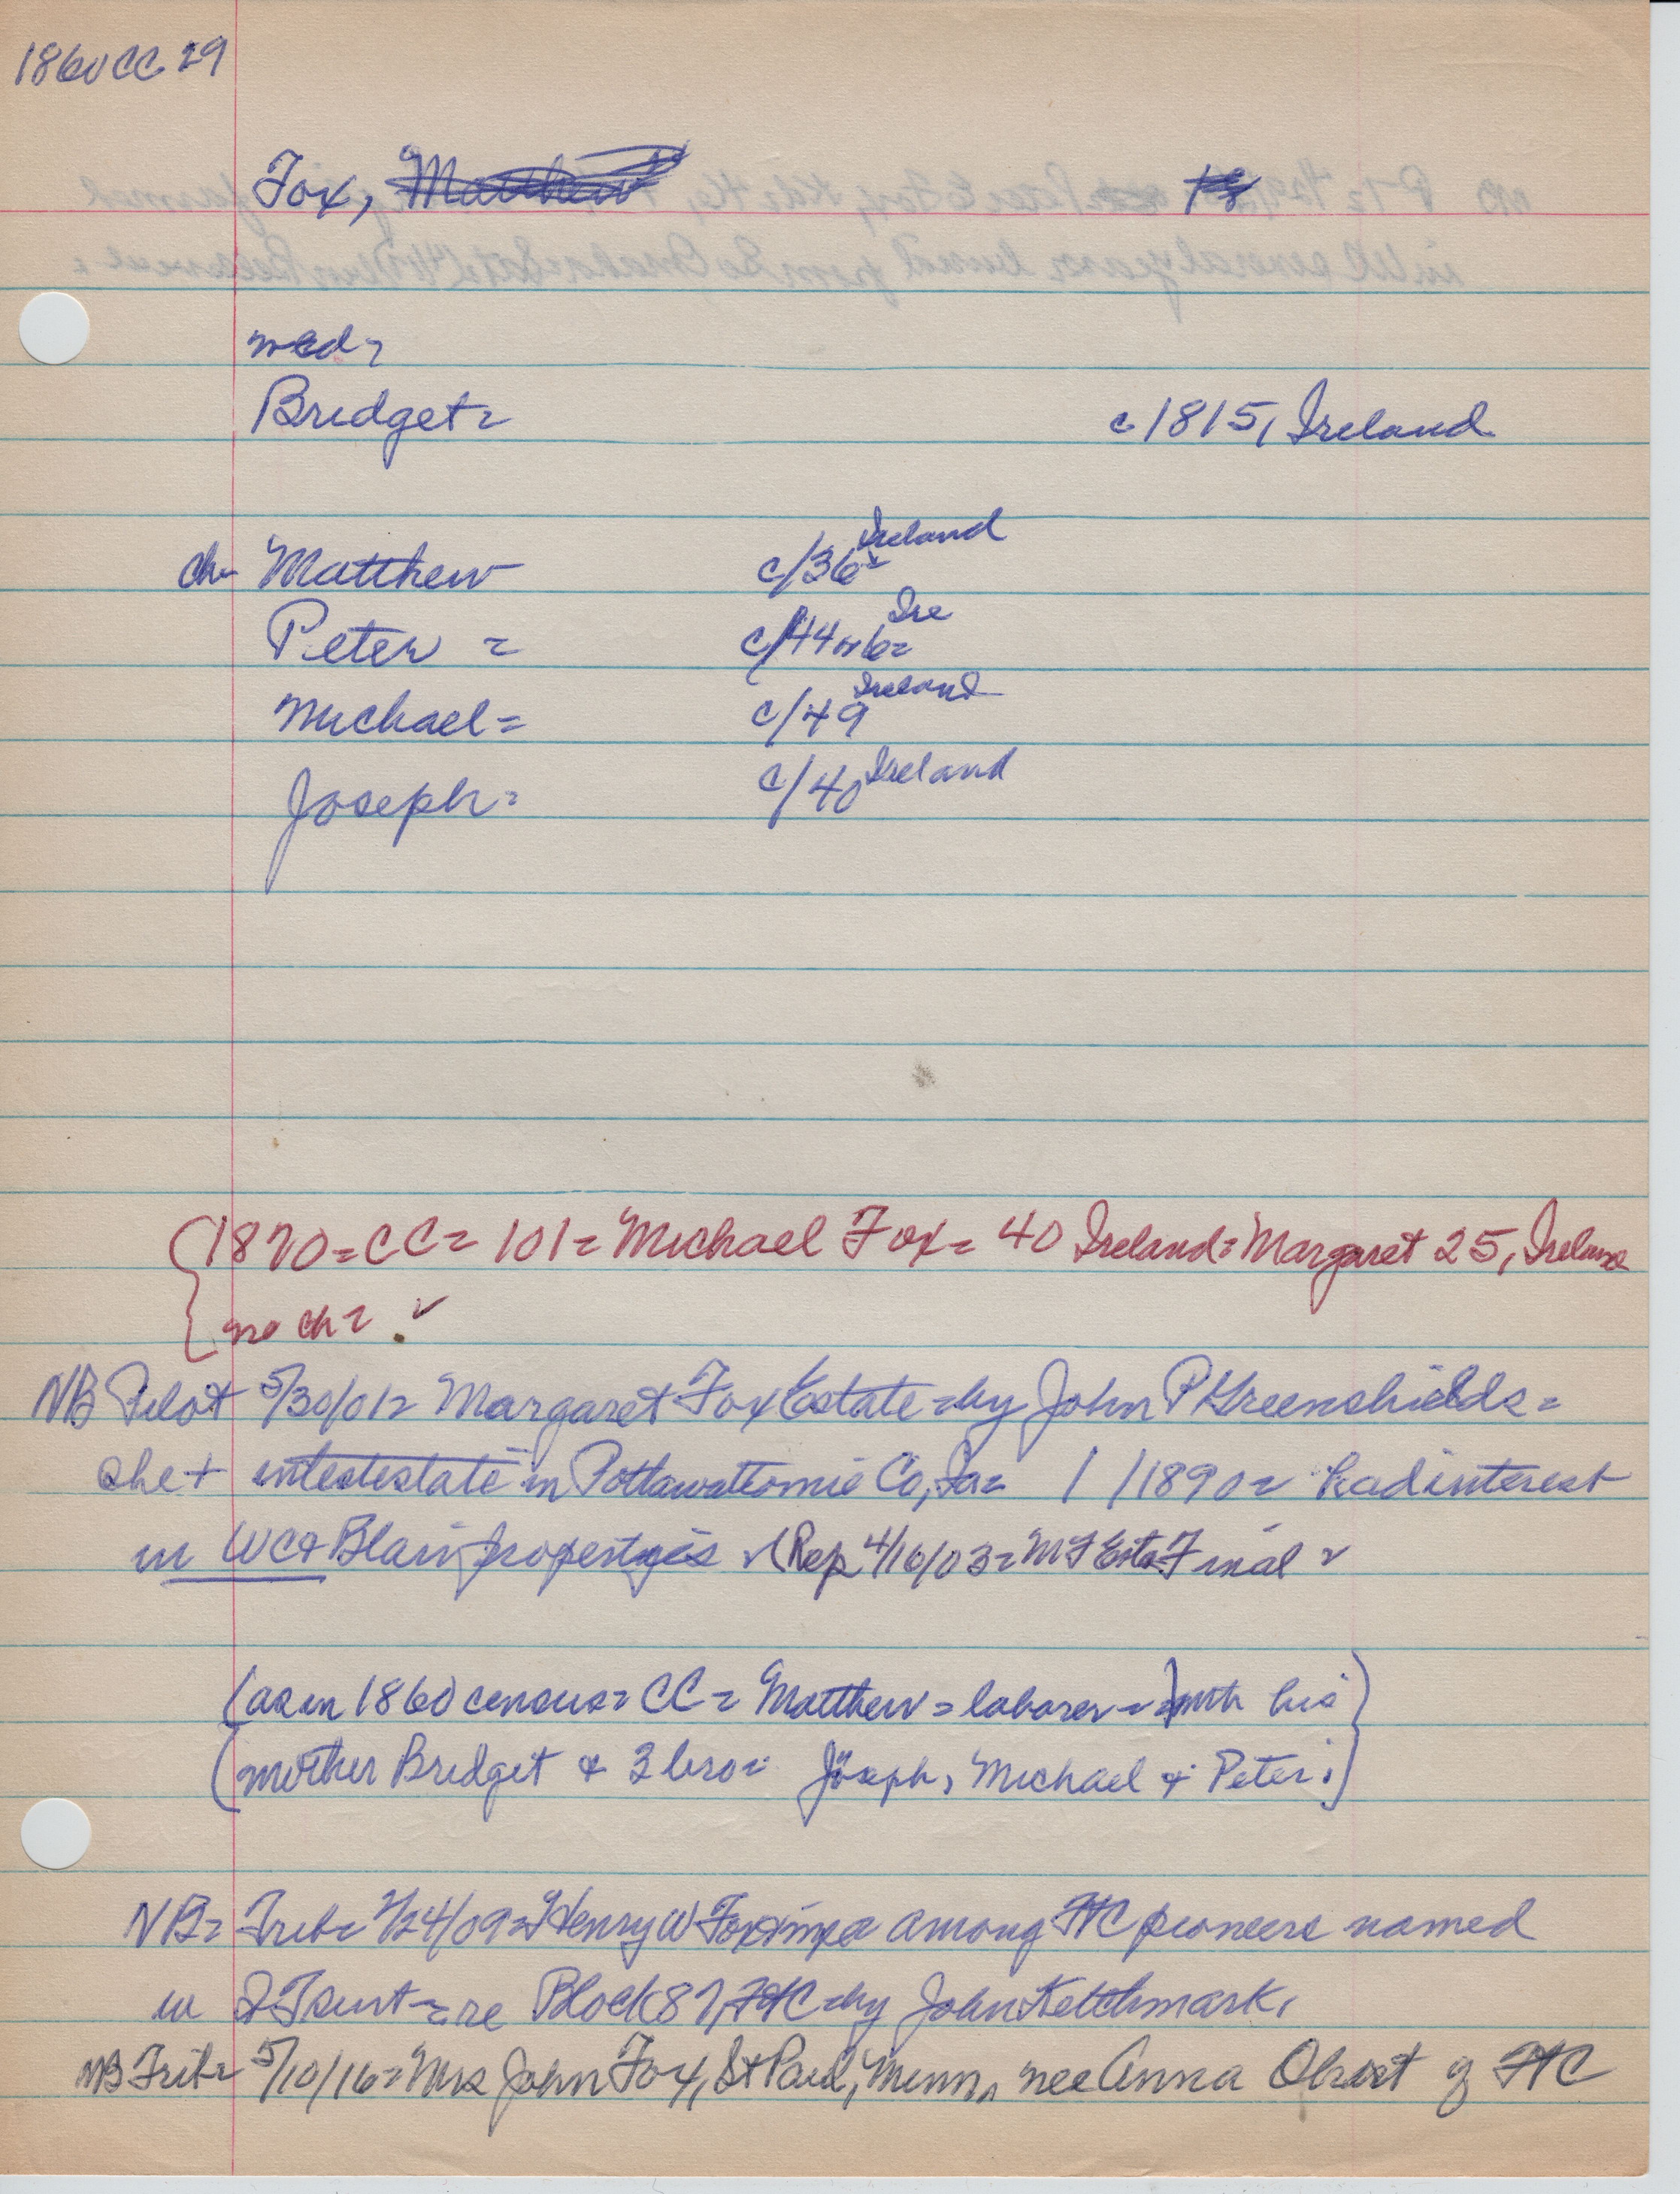 1860 CC 29
Fox, Matthew
med =
Bridget = c 1815, Ireland
ch - Matthew c/36 Ireland
Peter = c/44 or 6 = Ire
Michael = c/49 Ireland
Joseph = c/40 Ireland
1870 = CC = 101 = Michael Fox = 40 Ireland = Margaret 25, Ireland
no ch =
NB Pilot 5/30/01 = Margaret Fox Estate = by John P Greenshields =
she + intestate in Pottawattomie Co, Ia = / /1890 = had interest
in WC & Blair properties (Rep 4/16/03 = MF Esta Final
(as in 1860 census = CC = Matthew = laborer = with his
mother Bridget & 3 bro = Joseph, Michael & Peter.)
NB = Trib = 2/24/09 = Henry W Fox among FTC pioneers named
in = re Block 87, FTC = by John Ketchmark,
NB Trib = 5/10/16 = Mrs John Fox, St Paul, Minn, nee Anna of FTC